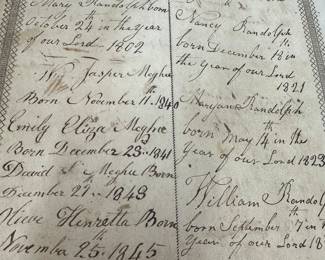 Mary Randolph born
October 24th in the year
of our Lord 1802
Wm Jasper Meghee
Born November 11th 1840
Emily Eliza Meghee
Born December 23d 1841
David S Meghee Born
December 21st 1843
Nieve Henretta Born
November 25th 1845
Nancy Randolph
born December 18th in
the Year of our Lord
1821
Maryann Randolph
born May 14th in the
Year of our Lord 1823
William Randolp
born September 7th in
Year of our Lord 18